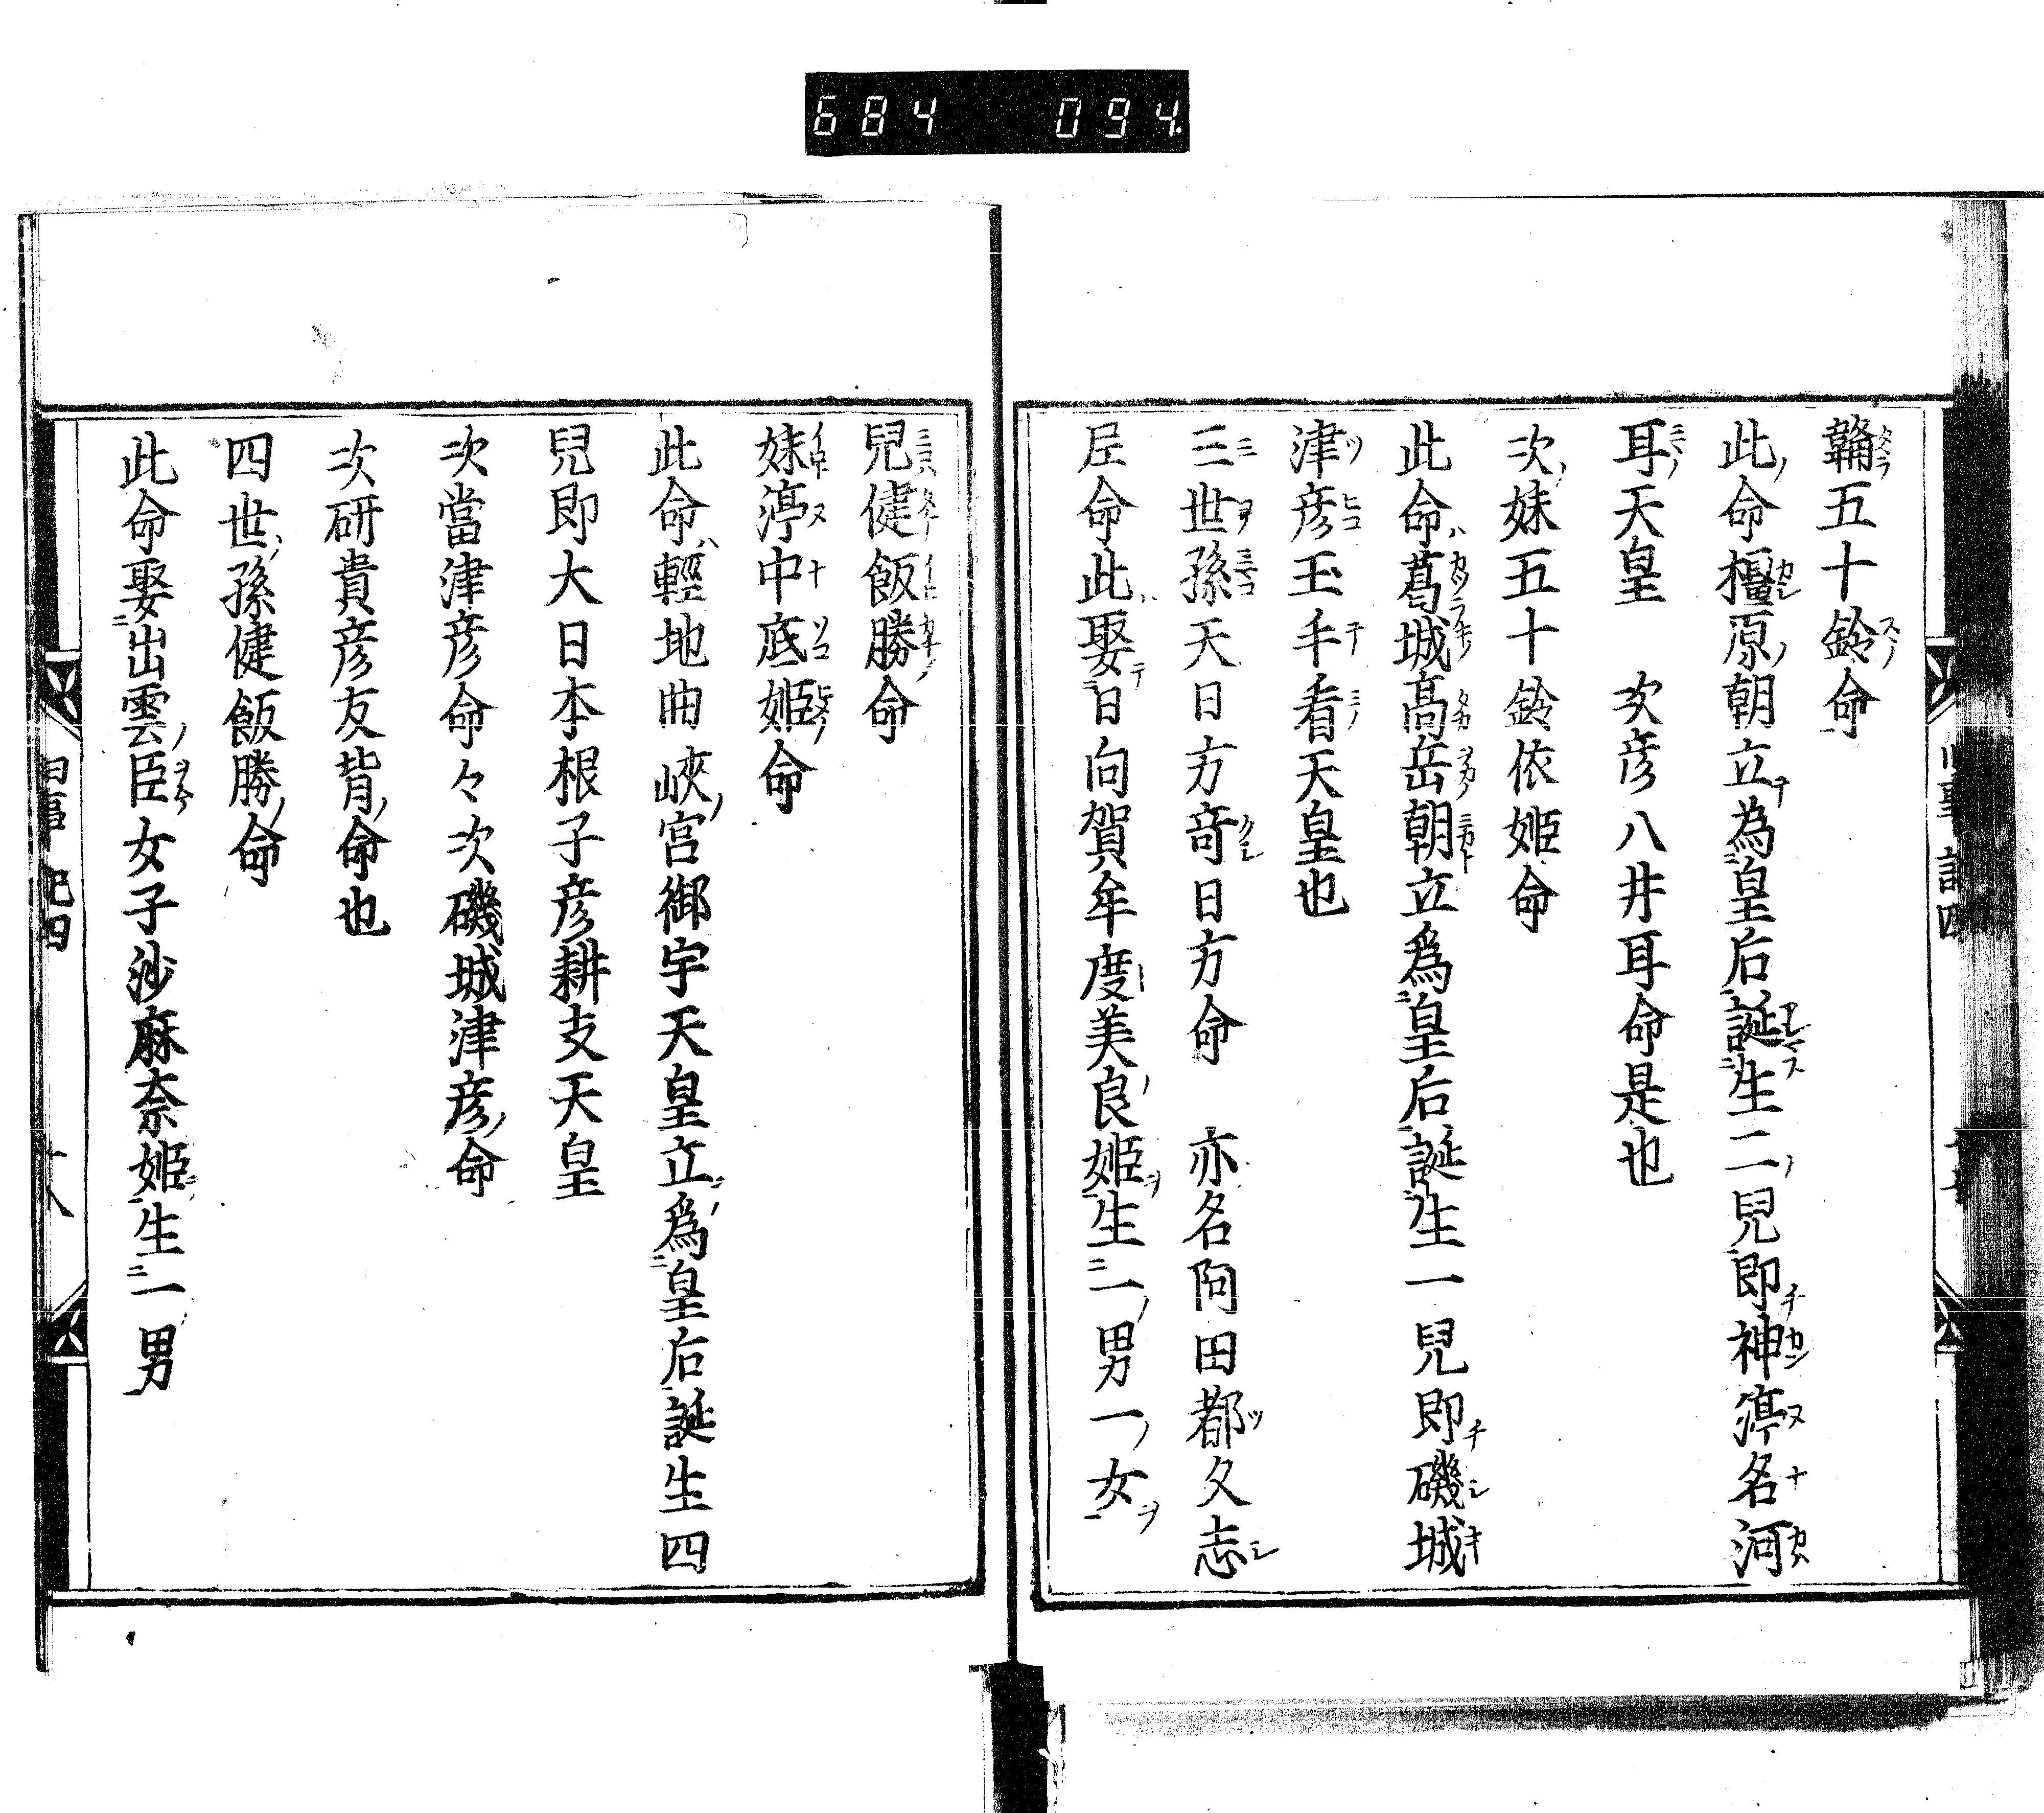 684 094
鞴五十鈴命
此命橿原朝立為皇后誕生二兒即神渟名河
耳天皇 次彦八井耳命是也
次妹五十鈴依姫命
此命葛城高岳朝立為皇后誕生一兒即磯城
津彦玉手看天皇也
三世孫天日方奇日方命 亦名阿田都久志
尼命此娶日向賀牟度美良姫生一男一女
兒健飯勝命
妹渟中底姫命
此命輕地曲峽宮御宇天皇立為皇后誕生四
兒即大日本根子彦耕支天皇
次當津彦命々次磯城津彦命
次研貴彦友背命也
四世孫健飯勝命
此命娶出雲臣女子沙麻奈姫生一男